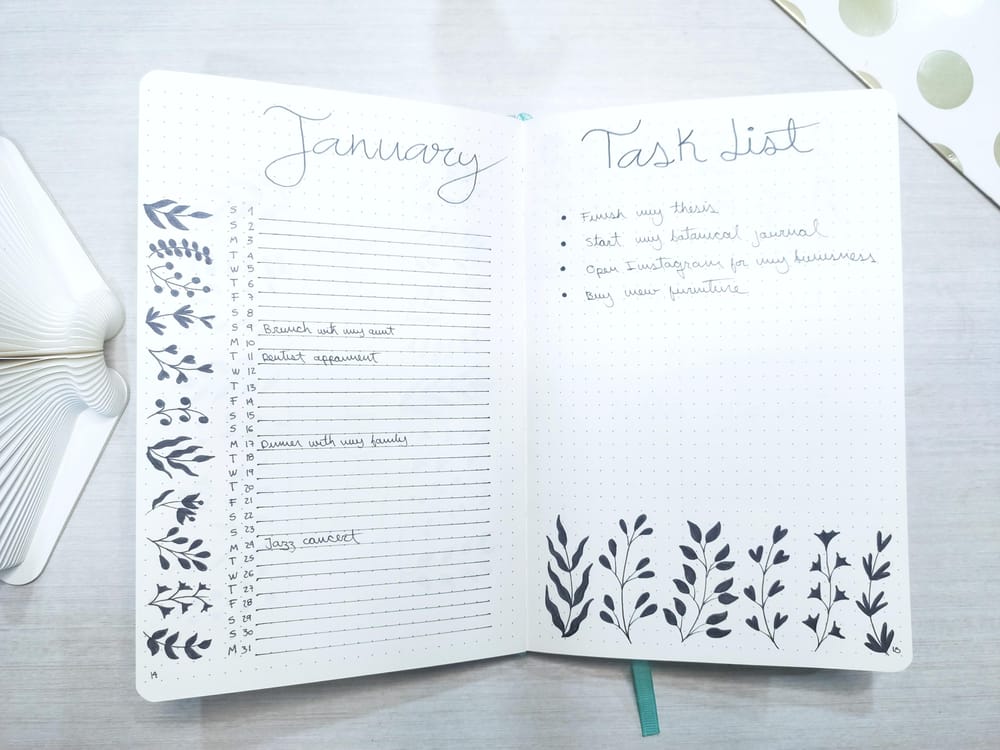 January
S 1
S 2
M 3
T 4
W 5
T 6
F 7
S 8
S 9 Brunch with my aunt
M 10
T 11 Dentist
W 12
T 13
F 14
S 15
S 16
M 17 Dinner with my family
T 18
W 19
T 20
F 21
S 22
S 23
M 24 Jazz concert
T 25
W 26
T 27
F 28
S 29
S 30
M 31
14
Task List
• Finish my thesis
• Start my botanical journal
• Open Instagram for my
• Buy new furniture
15